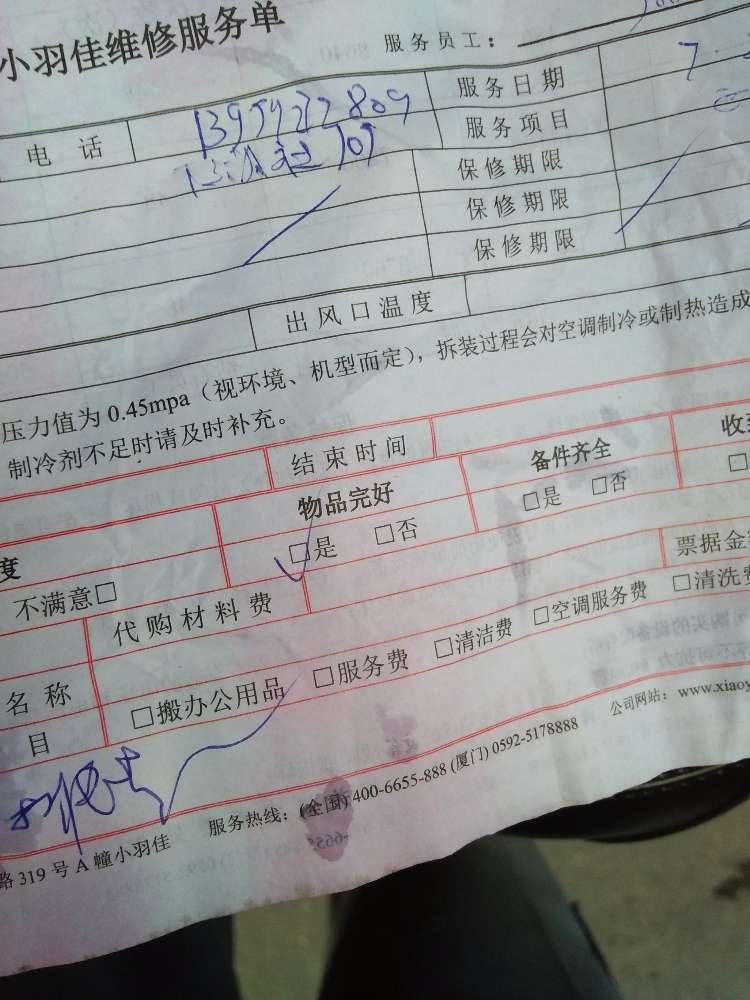 小羽佳维修服务单
服务员工：
电话 服务日期 7
服务项目
保修期限
保修期限
保修期限
出风口温度
压力值为0.45mpa（视环境、机型而定），拆装过程会对空调制冷或制热造成
制冷剂不足时请及时补充。
结束时间
度 物品完好 备件齐全 收
不满意□ □是 □否 □是 □否 □
代购材料费 票据金
名称 □搬办公用品 □服务费 □清洁费 □空调服务费 □清洗费
目
服务热线：(全国) 400-6655-888 (厦门) 0592-5178888 公司网站：www.xiaoy
路319号A幢小羽佳